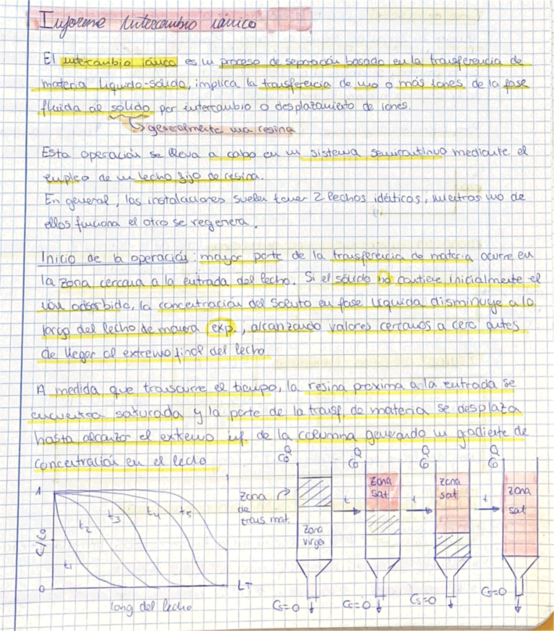 Informe Intercambio iónico
El intercambio iónico es un proceso de separación basado en la transferencia de
materia líquido-sólido, implica la transferencia de uno o más iones de la fase
fluida al sólido por intercambio o desplazamiento de iones.
generalmente una resina
Esta operación se lleva a cabo en un sistema semicontinuo mediante el
empleo de un lecho fijo de resina.
En general, las instalaciones suelen tener 2 lechos idénticos, mientras uno de
ellos funciona el otro se regenera.
Inicio de la operación: mayor parte de la transferencia de materia ocurre en
la zona cercana a la entrada del lecho. Si el sólido no contiene inicialmente el
ion adsorbido, la concentración del soluto en fase líquida disminuye a lo
largo del lecho de manera exp., alcanzando valores cercanos a cero antes
de llegar al extremo final del lecho
A medida que transcurre el tiempo, la resina próxima a la entrada se
encuentra saturada y la parte de la transf. de materia se desplaza
hasta alcanzar el extremo inf. de la columna generando un gradiente de
concentración en el lecho
1
C/Co
0
t1
t2
t3
t4
t5
LT
long del lecho
Zona
de
trans mat.
Q
Co
zona
virgen
Cs=0
t
Q
Co
zona
sat
Cs=0
t
Q
Co
zona
sat
Cs=0
t
Q
Co
zona
sat
Cs=0